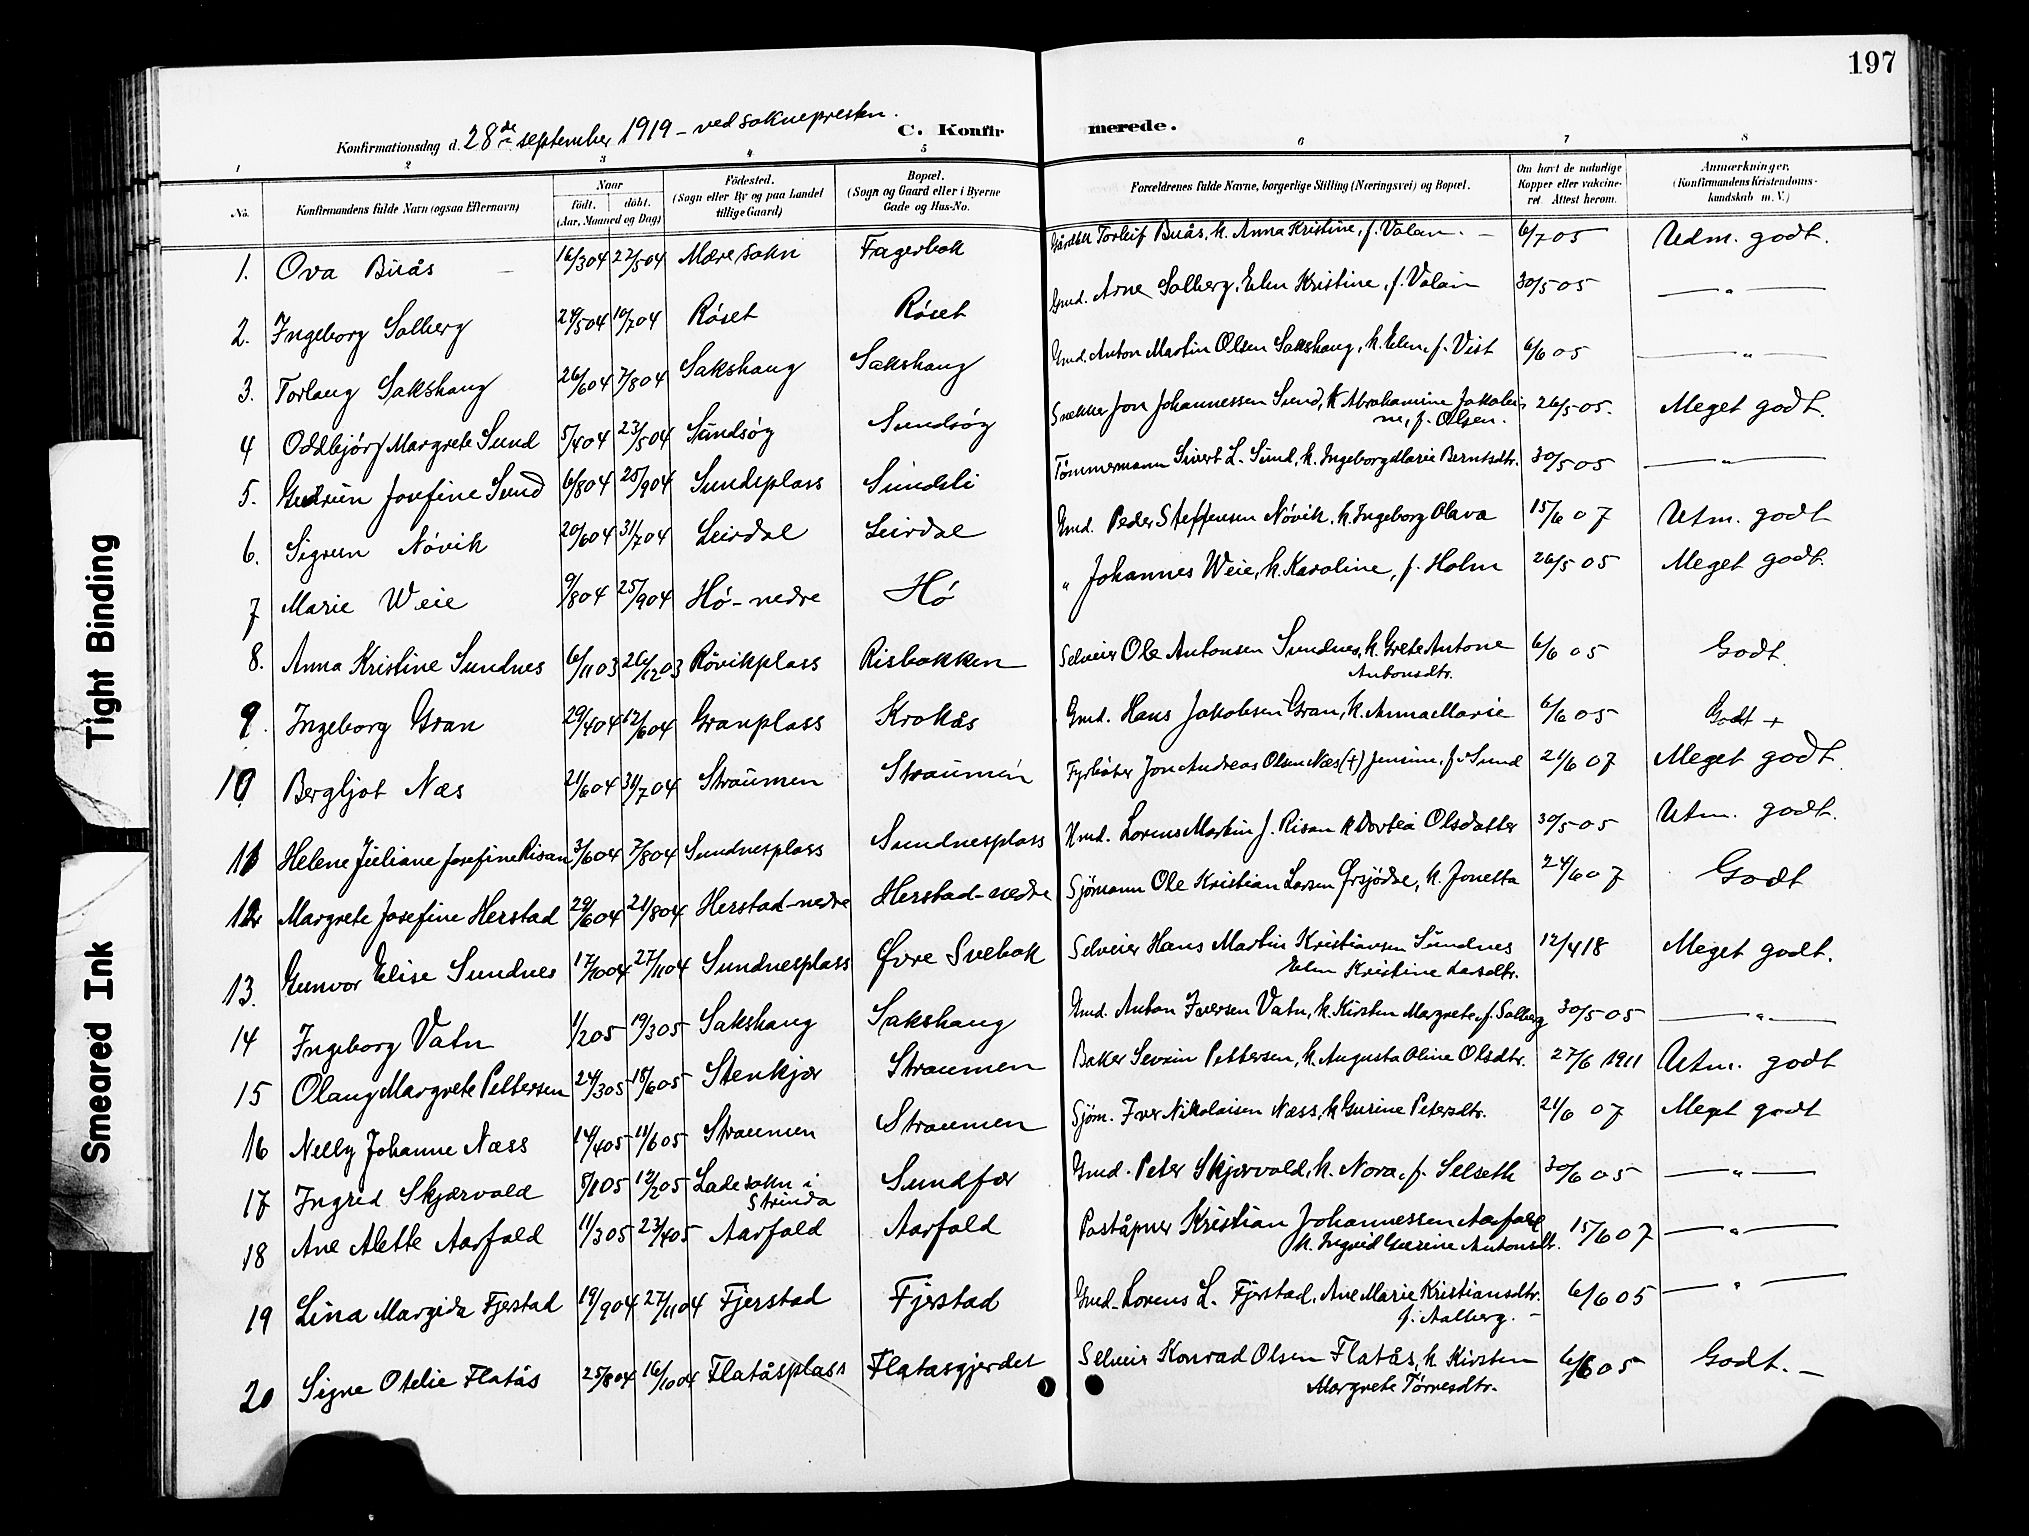 197
Konfirmationsdag d. 28de september 1919 - ved soknepresten.
C. Konfirmerede.
1 2 3 4 5 6 7 8
No. Konfirmandens fulde Navn (ogsaa Efternavn) Naar født. døbt. (Aar, Maaned og Dag) Fødested. (Sogn eller By og paa Landet tillige Gaard) Bopæl. (Sogn og Gaard eller i Byerne Gade og Hus-No. Forældrenes fulde Navne, borgerlige Stilling (Næringsvei) og Bopæl. Om havt de naturlige Kopper eller vakcineret. Attest herom. Anmærkninger. (Konfirmandens Kristendomskundskab m. V.)
1. Ova Buås 16/3 04 22/5 04 Mære sokn Fagerbak Torleif Buås, k. Anna Kristine, f. Valan. - 6/7 05 Udm. godt.
2. Ingeborg Solberg 24/5 04 10/7 04 Røset Røset Gmd. Arne Solberg, Elen Kristine, f. Valan 30/5 05 — " —
3. Torlaug Sakshaug 26/6 04 7/8 04 Sakshaug Sakshaug Gmd. Anton Martin Olsen Sakshaug, k. Elen, f. Vist 6/6 05 — " —
4 Oddbjørg Margrete Sund 5/4 04 23/5 04 Sundsøy Sundsøy Snekker Jon Johannessen Sund, k. Abrahamine Jakobi-
ne, f. Olsen. 26/5 05. Meget godt.
5. Gudrun Josefine Sund 6/8 04 25/9 04 Sundsplass Sundsli Tømmermann Sivert L. Sund, k. Ingeborg Marie Berntsdtr. 30/5 05 — " —
6. Sigrun Nøvik 20/6 04 31/7 04 Leirdal Leirdal Gmd. Peder Steffensen Nøvik, k. Ingeborg Olava 15/6 07 Utm. godt
7 Marie Weie 9/8 04 25/9 04 Hø-nedre Hø " Johannes Weie, k. Karoline, f. Holm 26/5 05 Meget godt.
8. Anna Kristine Sundnes 6/11 03 26/12 03 Røvikplass Risbakken Selveier Ole Antonsen Sundnes, k. Grete Antone
Antonsdtr. 6/6 05 Godt.
9. Ingeborg Gran 29/4 04 12/6 04 Granplass Krokås Gmd. Hans Jakobsen Gran, k. Anna Marie 6/6 05 Godt +
10 Bergljot Næs 21/6 04 31/7 04 Straumen Straumen Fyrbøter Jon Andreas Olsen Næs (+) Jenine, f. Sund 21/6 07 Meget godt.
11 Helene Juliane Josefine Risan 3/6 04 7/8 04 Sundnesplass Sundnesplass Hmd. Lorens Martin J. Risan k. Dortea Olsdatter 30/5 05 Utm. godt.
12 Margrete Josefine Herstad 29/6 04 21/8 04 Herstad-nedre Herstad-nedre Sjømann Ole Kristian Larsen Ørsjødse, k. Jonetta 24/6 07 Godt
13. Gunvor Elise Sundnes 17/10 04 27/11 04 Sundnesplass Øvre Svebak Selveier Hans Martin Kristiansen Sundnes
Elen Kristine Larsdtr. 12/4 18 Meget godt.
14 Ingeborg Vatn 1/2 05 19/3 05 Sakshaug Sakshaug Gmd. Anton Iversen Vatn, k. Kirsten Margrete, f. Solberg 30/5 05 — " —
15 Olaug Margrete Pettersen 24/3 05 18/6 05 Stenkjær Straumen Baker Sevrin Pettersen, k. Augusta Oline Olsdtr. 27/6 1911 Utm. godt
16 Nelly Johanne Næss 14/4 05 11/6 05 Straumen Straumen Sjøm. Iver Nikolaisen Næss, k. Gurine Petersdtr. 21/6 07 Meget godt
17 Ingrid Skjærvold 5/1 05 12/2 05 Lade sokn i
Strinda Sundfær Gmd. Peter Skjærvold, k. Nora, f. Selseth 30/6 05 — " —
18 Ane Alette Aarfald 11/3 05 23/4 05 Aarfald Aarfald Poståpner Kristian Johannessen Aarfald
k. Ingrid Gurine Antonsdtr. 15/6 07 — " —
19 Lina Margida Fjerstad 19/9 04 27/11 04 Fjerstad Fjerstad Gmd. Lorens L. Fjerstad, Ane Marie Kristiansdtr.
f. Aalberg. - 6/6 05 — " —
20 Signe Otelie Flatås 25/8 04 16/10 04 Flatåsplass Flatåsgjerdet Selveier Konrad Olsen Flatås, k. Kirsten
Margrete Tørresdtr. 6/6 05 Godt. -
Tight Binding
Smeared Ink